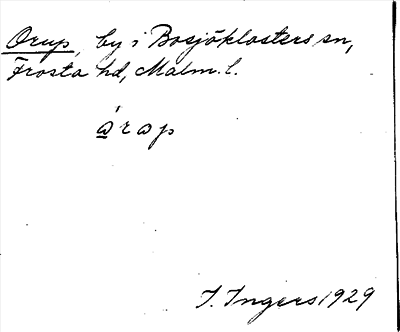 Orup, by i Bosjöklosters sn,
Frosta hd, Malm. l.
órap
I. Ingers 1929